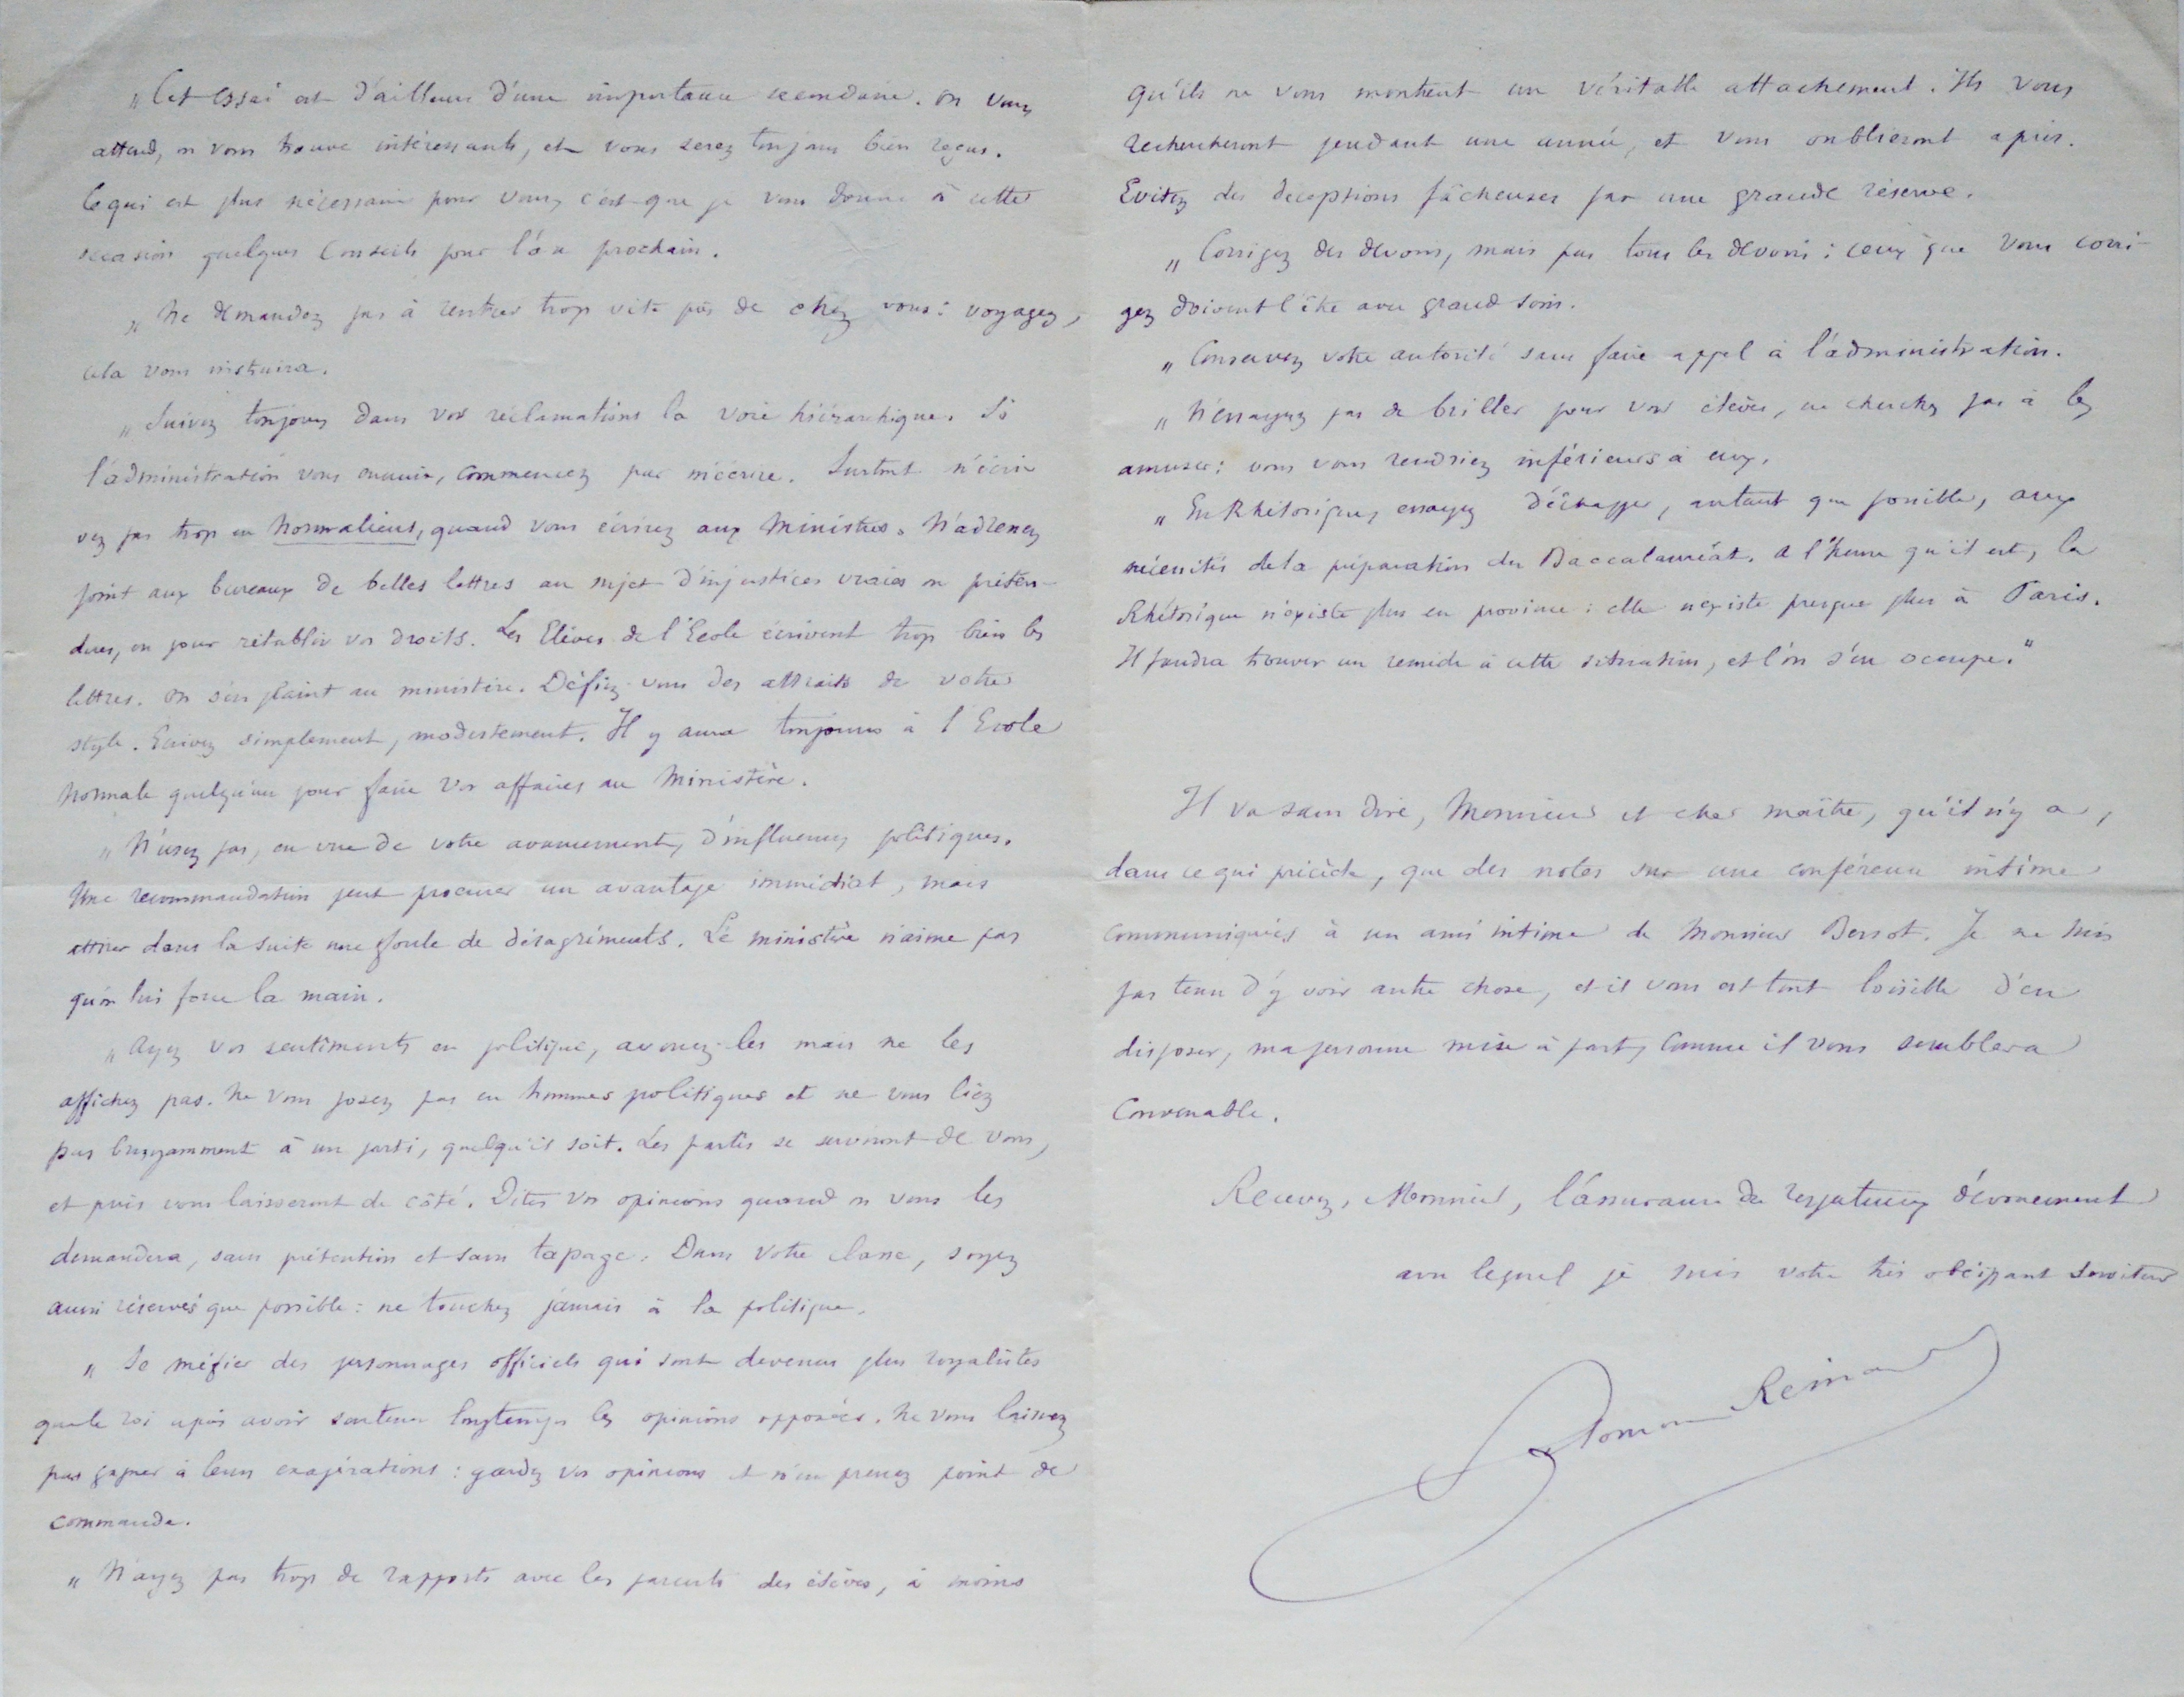 „ Cet essai est d'ailleurs d'une importance secondaire. On vous
attend, on vous trouve intéressants, et vous serez toujours bien reçus.
Ce qui est plus nécessaire pour vous, c'est que je vous donne à cette
occasion quelques conseils pour l'an prochain.
„ Ne demandez pas à rentrer trop vite près de chez vous : voyagez,
cela vous instruira.
„ Suivez toujours dans vos réclamations la voie hiérarchique. Si
l'administration vous ennuie, commencez par m'écrire. Surtout n'écri-
vez pas trop en Normaliens, quand vous écrivez aux Ministres. N'adressez
point aux bureaux de belles lettres au sujet d'injustices vraies ou préten-
dues, ou pour rétablir vos droits. Les Elèves de l'Ecole écrivent trop bien les
lettres. On s'en plaint au ministère. Défiez-vous des attraits de votre
style. Ecrivez simplement, modestement. Il y aura toujours à l'Ecole
Normale quelqu'un pour faire vos affaires au Ministère.
„ N'usez pas, en vue de votre avancement, d'influences politiques.
Une recommandation peut procurer un avantage immédiat, mais
attirer dans la suite une foule de désagréments. Le ministère n'aime pas
qu'on lui force la main.
„ Ayez vos sentiments en politique, avouez-les mais ne les
affichez pas. Ne vous posez pas en hommes politiques et ne vous liez
pas bruyamment à un parti, quelqu'il soit. Les partis se serviront de vous,
et puis vous laisseront de côté. Dites vos opinions quand on vous les
demandera, sans prétention et sans tapage. Dans votre classe, soyez
aussi réservés que possible : ne touchez jamais à la politique.
„ Se méfier des personnages officiels qui sont devenus plus royalistes
que le roi après avoir soutenu longtemps les opinions opposées. Ne vous laissez
pas gagner à leurs exagérations : gardez vos opinions et n'en prenez point de
commande.
„ N'ayez pas trop de rapports avec les parents des élèves, à moins
qu'ils ne vous montrent un véritable attachement. Ils vous
rechercheront pendant une année, et vous oublieront après.
Evitez des déceptions fâcheuses par une grande réserve.
„ Corrigez des devoirs, mais pas tous les devoirs : ceux que vous corri-
gez doivent l'être avec grand soin.
„ Conservez votre autorité sans faire appel à l'administration.
„ N'essayez pas de briller pour vos élèves, ne cherchez pas à les
amuser : vous vous rendriez inférieurs à eux.
„ En Rhétorique, essayez d'échapper, autant que possible, aux
nécessités de la préparation du Baccalauréat. A l'heure qu'il est, la
Rhétorique n'existe plus en province : elle n'existe presque plus à Paris.
Il faudra trouver un remède à cette situation, et l'on s'en occupe."
Il va sans dire, Monsieur et cher maître, qu'il n'y a,
dans ce qui précède, que des notes sur une conférence intime
communiquées à un ami intime de Monsieur Bersot. Je ne suis
pas tenu d'y voir autre chose, et il vous est tout loisible d'en
disposer, ma personne mise à part, comme il vous semblera
convenable.
Recevez, Monsieur, l'assurance du respectueux dévouement
avec lequel je suis votre très obéissant serviteur
Salomon Reinach